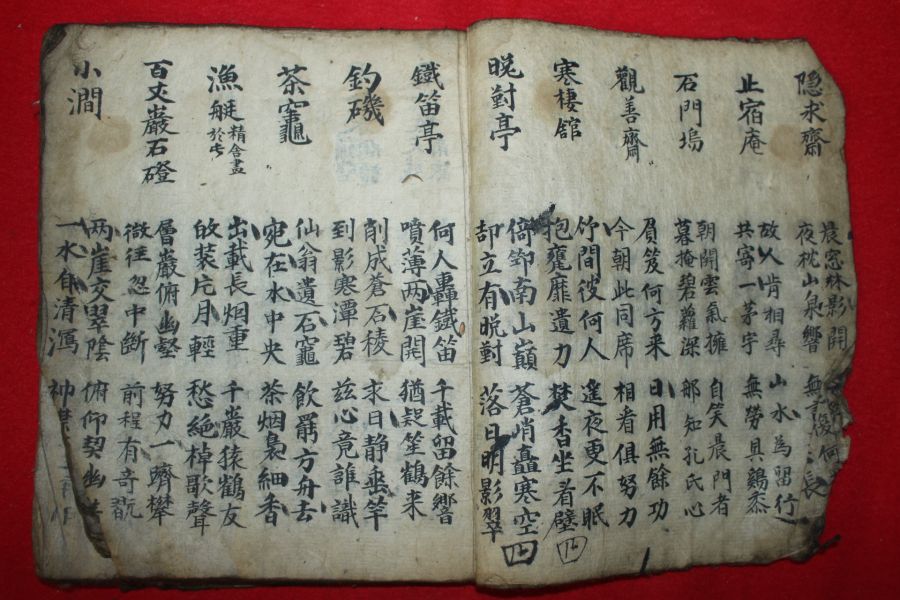 隱求齋
晨窓林影開 復何
夜枕山泉響 無言 長
止宿庵
故人肯相尋 山水為留行
共寄一茅宇 無勞具鷄黍
石門塢
朝開雲氣擁 自笑晨門者
暮掩碧蘿深 那知孔氏心
觀善齋
負笈何方来 日用無餘功
今朝此同席 相者俱努力
寒棲舘
竹間彼何人 遥夜更不眠
抱甕靡遺力 焚香坐看壁
晩對亭
倚筇南山巔 蒼峭矗寒空
却立有晩對 落日明影翠
鐵笛亭
何人轟鐵笛 千載留餘響
噴薄两崖開 猶疑笙鶴来
釣磯
削成蒼石稜 求日静垂竿
到影寒潭碧 玆心竟誰識
茶竈
仙翁遺石竈 飲罷方舟去
宛在水中央 茶烟裊細香
漁艇 精舍盡於此
出載長烟重 千巖猿鶴友
故装片月輕 愁絶棹歌聲
百丈巖石磴
層巖俯幽壑 努力一躋攀
微徑忽中斷 前程有奇翫
小澗
两崖交翠陰 俯仰契幽
一水自清瀉 神